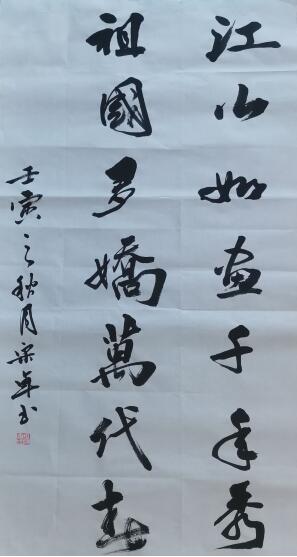 江山如画千年秀
祖國多嬌萬代春
壬寅之秋月宗卓书